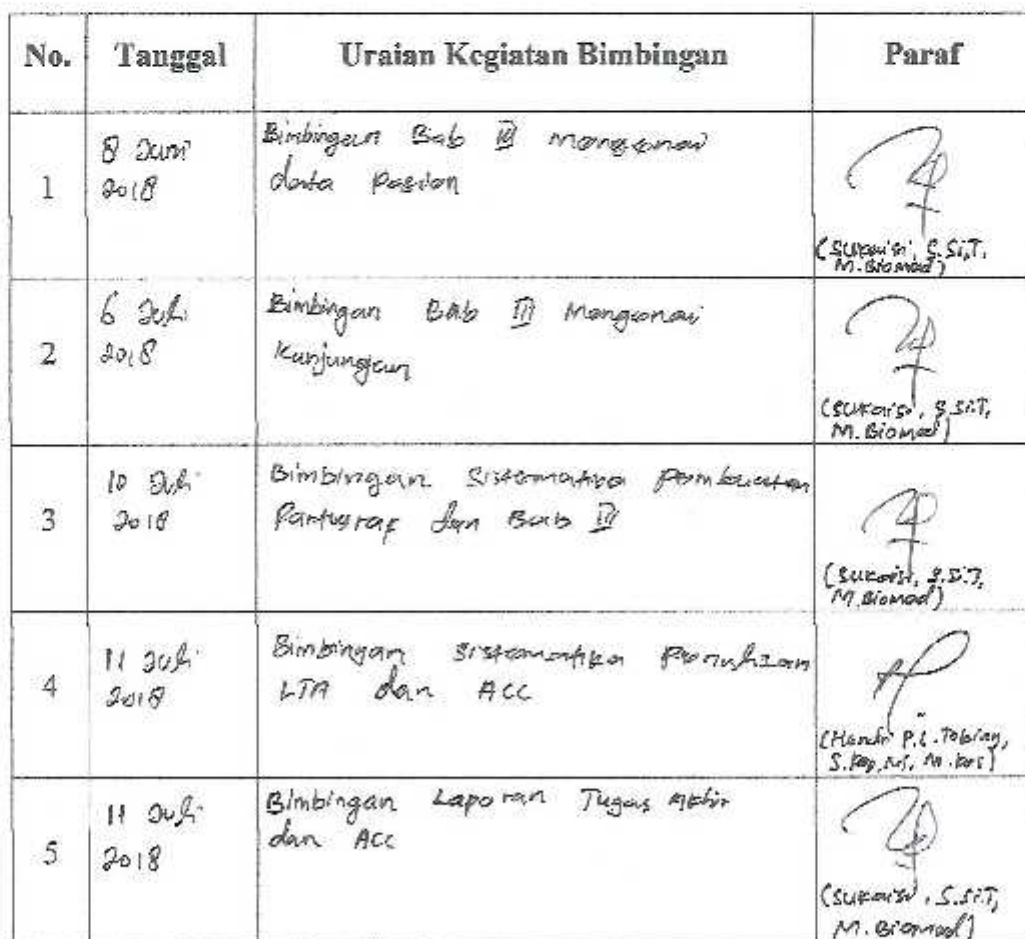 No. Tanggal Uraian Kegiatan Bimbingan Paraf
1
8 Juni
2018
Bimbingan Bab III mengenai
data Pasien
(Sukaisi, S.SiT,
M.Biomed)
2
6 Juli
2018
Bimbingan Bab III Mengenai
Kunjungan
(Sukaisi, S.SiT,
M.Biomed)
3
10 Juli
2018
Bimbingan Sistematika Pembuatan
Partograf dan Bab
(Sukaisi, S.SiT,
M.Biomed)
4
11 Juli
2018
Bimbingan Sistematika Penulisan
LTA dan ACC
(Handri P.L.Tobing,
S.Kep, Ns, M.Kes)
5
11 Juli
2018
Bimbingan Laporan Tugas Akhir
dan ACC
(Sukaisi, S.SiT,
M.Biomed)